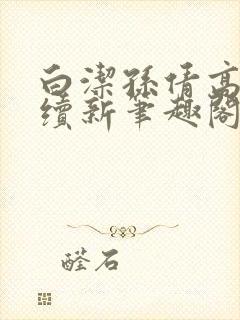 白潔孫倩高
續新筆趣閣
醛石